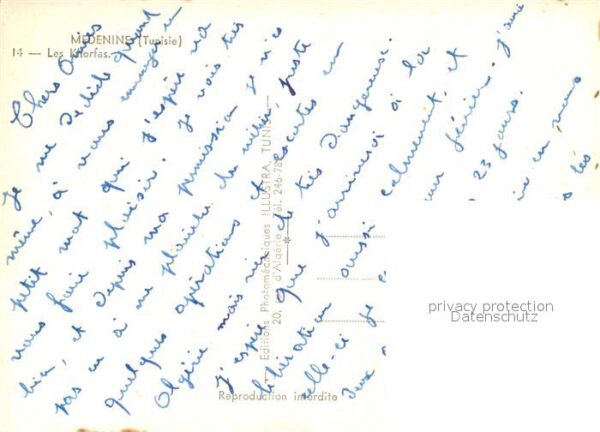 MEDENINE (Tunisie)
14 — Les Khorfas.
Chers Amis
Je me décide quand
même, à vous envoyer un
petit mot qui j'espère va
vous faire plaisir. Je vais très
bien, et depuis ma permission je n'ai
pas eu à me plaindre du métier, juste
quelques opérations et escortes en
Algérie mais rien de très dangereuse.
J'espère que j'arriverai à la
libération aussi calmement, et
celle-ci je
deux
février. J'aurai
23 jours.
en
vous
les
Editions Photomécaniques ILLUSTRA, TUNIS
20, rue d'Algérie Tél. 246-78
Reproduction interdite
privacy protection
Datenschutz